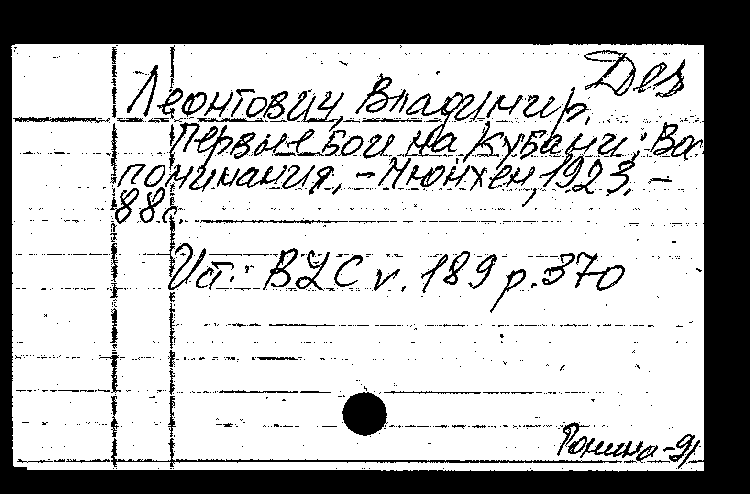 Дез
Леонтович, Владимир.
Первые бои на Кубани: Вос
поминания. - Мюнхен, 1923. -
88с.
Ист.: BLC v. 189 p. 370
Ронина-91